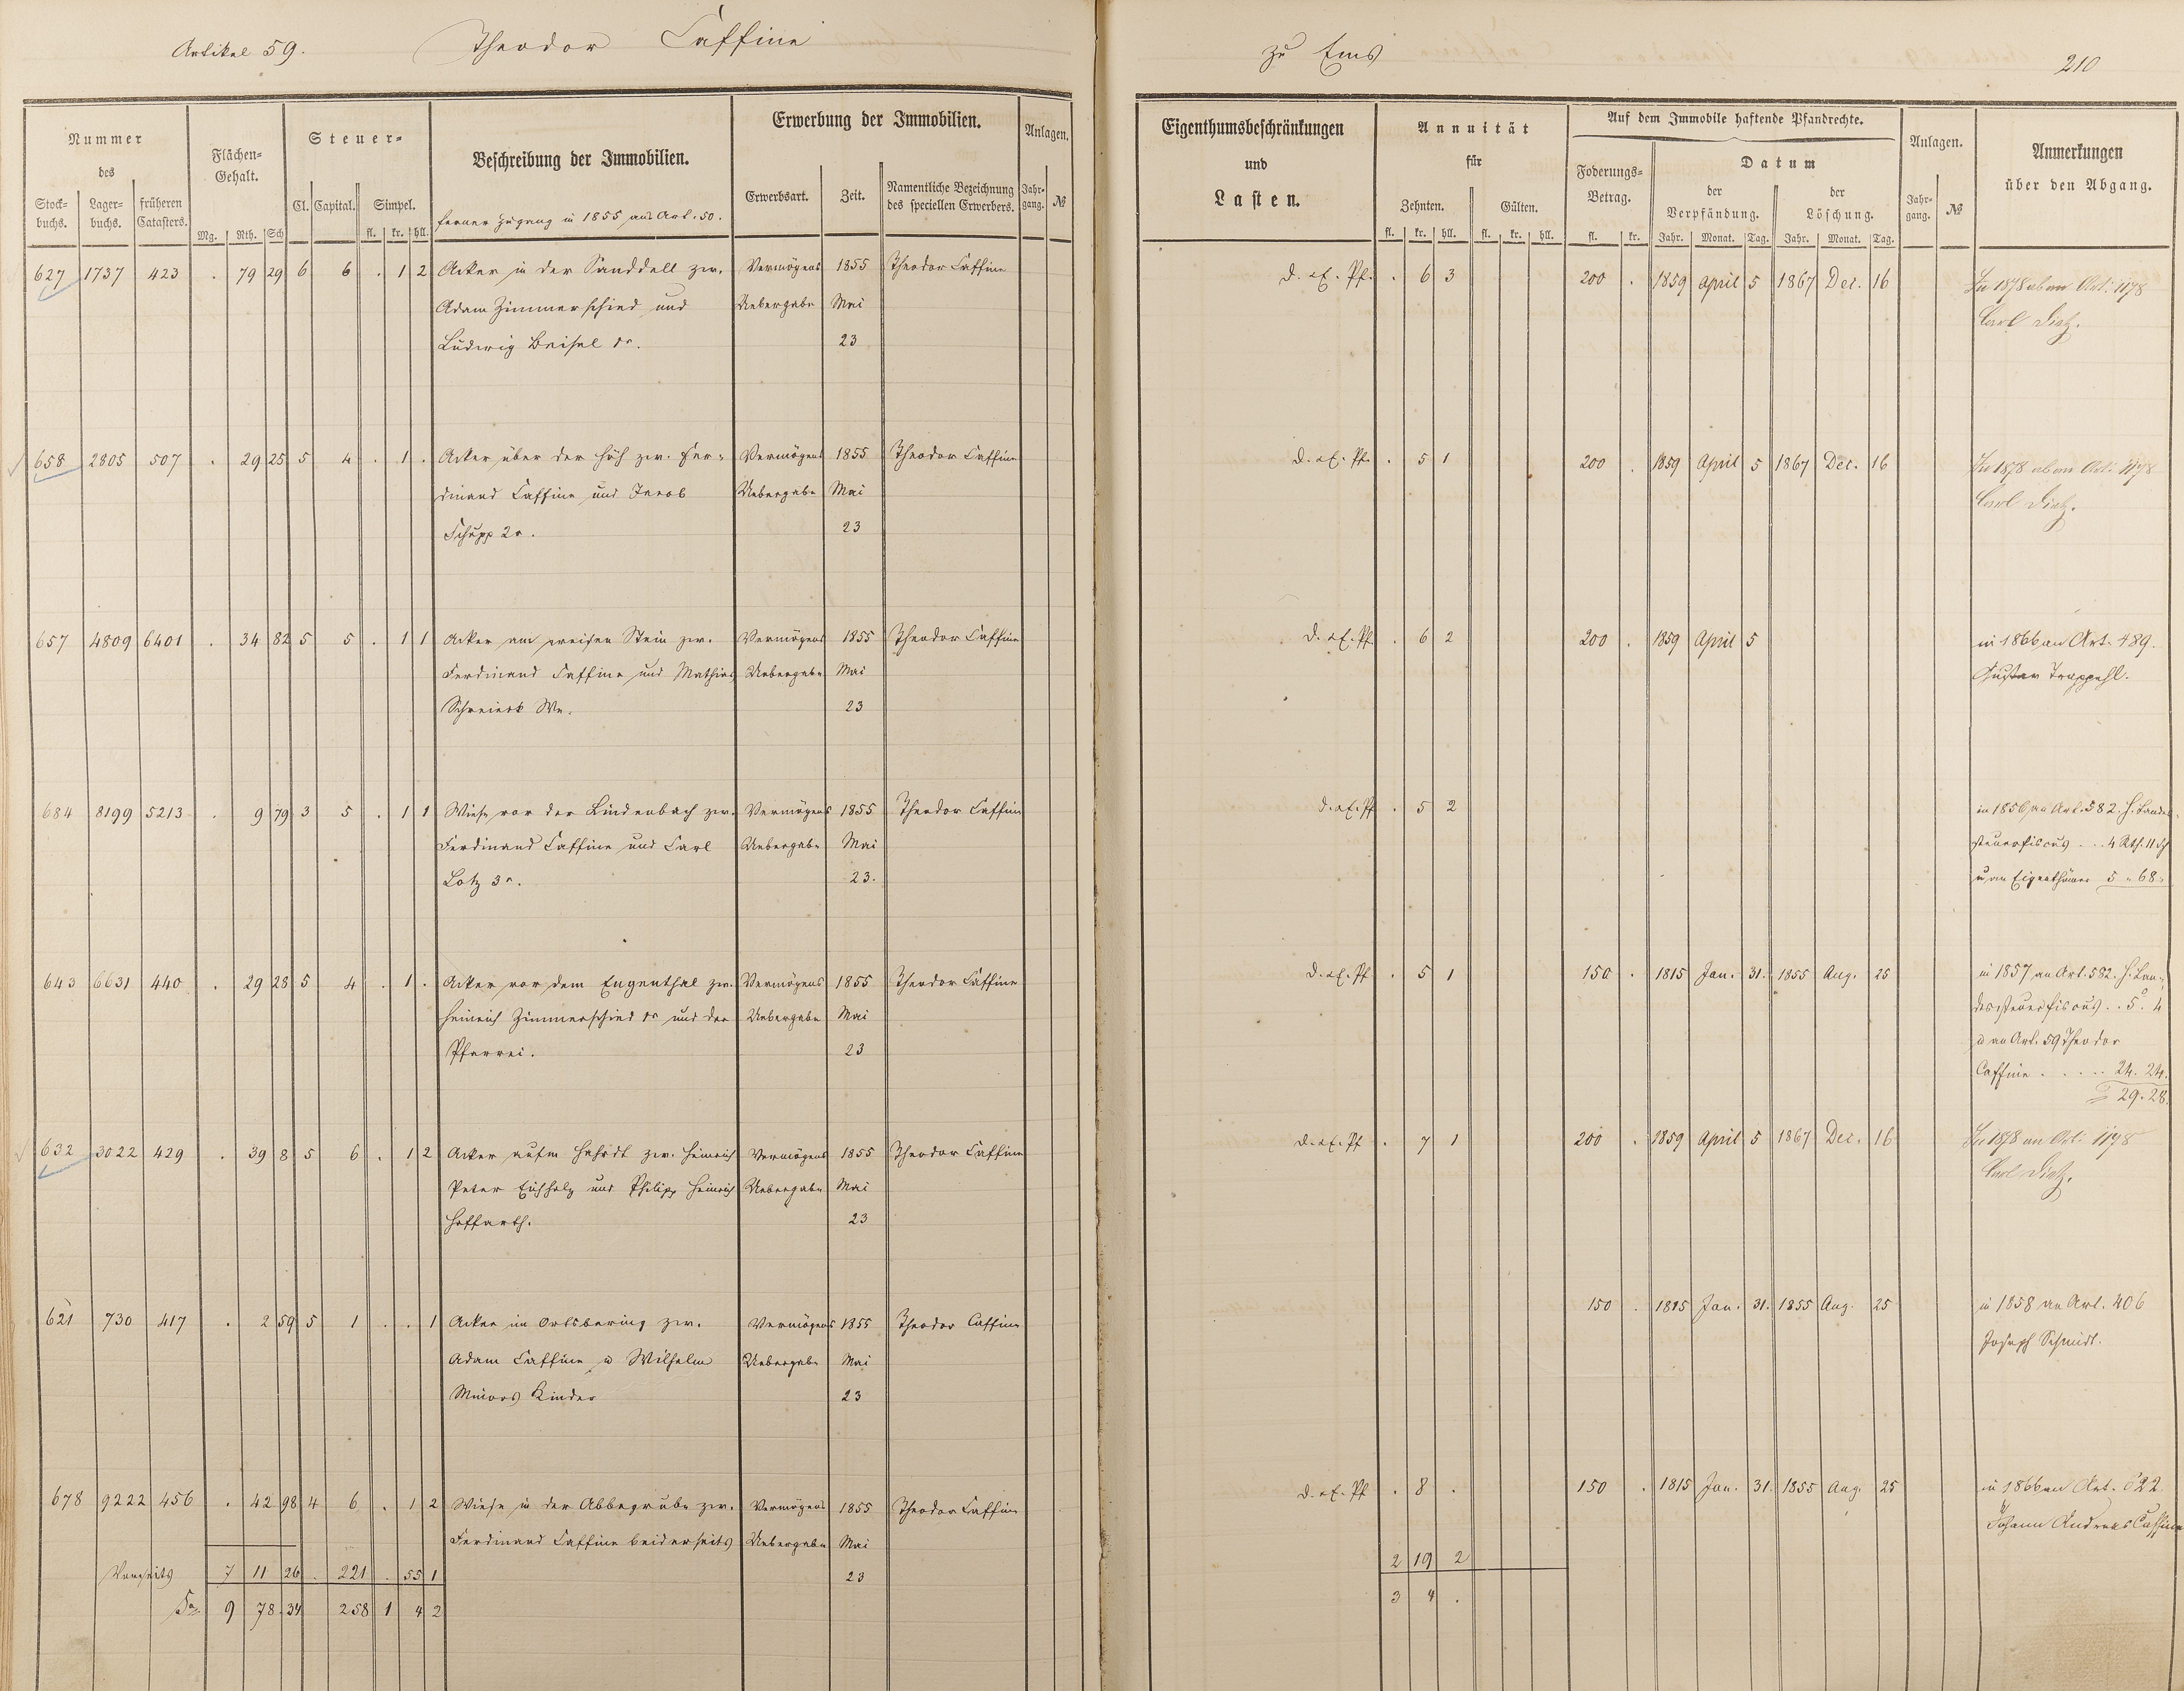 Artikel 59. Theodor Caffine
zu Ems 210
Nummer des
Stock- buchs. Lager- buchs. früheren Catasters.
Flächen- Gehalt.
Mg. Rth. Sch
Steuer-
Cl. Capital. Simpel.
fl. kr. hll.
Beschreibung der Immobilien.
ferner Zugang in 1855 aus Art. 50.
Erwerbung der Immobilien.
Erwerbsart. Zeit. Namentliche Bezeichnung des speciellen Erwerbers.
Anlagen.
Jahr- gang. №
Eigenthumsbeschränkungen
und
Lasten.
Annuität
für
Zehnten. Gülten.
fl. kr. hll. fl. kr. hll.
Auf dem Immobile haftende Pfandrechte.
Foderungs- Betrag.
fl. kr.
Datum
der Verpfändung. der Löschung.
Jahr. Monat. Tag. Jahr. Monat. Tag.
Anlagen.
Jahr- gang. №
Anmerkungen
über den Abgang.
627 1737 423 . 79 29 6 6 . 1 2 Acker in der Sanddell zw. Vermögens 1855 Theodor Caffine
Adam Zimmerschied und Uebergabe Mai
Ludwig Beisel 1r. 23
d. . Pf. . 6 3 200 . 1859 April 5 1867 Dec. 16 In 1878 an Art. 1178
Carl Dietz.
658 2805 507 . 29 25 5 4 . 1 . Acker über der Höh zw. Fer- Vermögens 1855 Theodor Caffine
dinand Caffine und Jacob Uebergabe Mai
Schupp 2r. 23
d. . Pf. . 5 1 200 . 1859 April 5 1867 Dec. 16 In 1878 an Art. 1178
Carl Dietz.
657 4809 6401 . 34 82 5 5 . 1 1 Acker am weisen Stein zw. Vermögens 1855 Theodor Caffine
Ferdinand Caffine und Mathias Uebergabe Mai
We. 23
d. . Pf. . 6 2 200 . 1859 April 5 in 1866 an Art. 489.
Gustav Trappehl.
684 8199 5213 . 9 79 3 5 . 1 1 Wiese vor der Lindenbach zw. Vermögens 1855 Theodor Caffine
Ferdinand Caffine und Carl Uebergabe Mai
Lotz 3r. 23.
d. . Pf . 5 2 in 1856 an Art. 582. H. Landes-
steuerfiscus . . 4 Rth. 11 Sch
u. an Eigenthümer 5 " 68 "
643 6631 440 . 29 28 5 4 . 1 . Acker vor dem Engenthal zw. Vermögens 1855 Theodor Caffine
Heinrich Zimmerschied 1r und der Uebergabe Mai
Pfarrei. 23
d. . Pf . 5 1 150 . 1815 Jan. 31. 1855 Aug. 25 in 1857 an Art. 582. H. Lan-
dessteuerfiscus . . 5. 4
u an Art. 59 Theodor
Caffine . . . . . 24. 24.
29. 28.
632 3022 429 . 39 8 5 6 . 1 2 Acker aufm Hahrdt zw. Heinrich Vermögens 1855 Theodor Caffine
Peter Eichholz und Philipp Heinrich Uebergabe Mai
Hoffarth. 23
d. . Pf . 7 1 200 . 1859 April 5 1867 Dec. 16 In 1878 an Art. 1178
Carl Dietz.
621 730 417 . 2 59 5 1 . . 1 Acker im Ortsbering zw. Vermögens 1855 Theodor Caffine
Adam Caffine u Wilhelm Uebergabe Mai
Kinder 23
150 . 1815 Jan. 31. 1855 Aug. 25 in 1858 an Art. 406
Joseph Schmidt.
678 9222 456 . 42 98 4 6 . 1 2 Wiese in der Abbegrube zw. Vermögens 1855 Theodor Caffine
Ferdinand Caffine beiderseits Uebergabe Mai
23
d. . Pf . 8 . 150 . 1815 Jan. 31. 1855 Aug. 25 in 1866 an Art. 622
Johann Andreas Caffine
Vorseits 7 11 26 . 221 . 55 1 2 19 2
Sa. 9 78 34 258 1 4 2 3 4 .